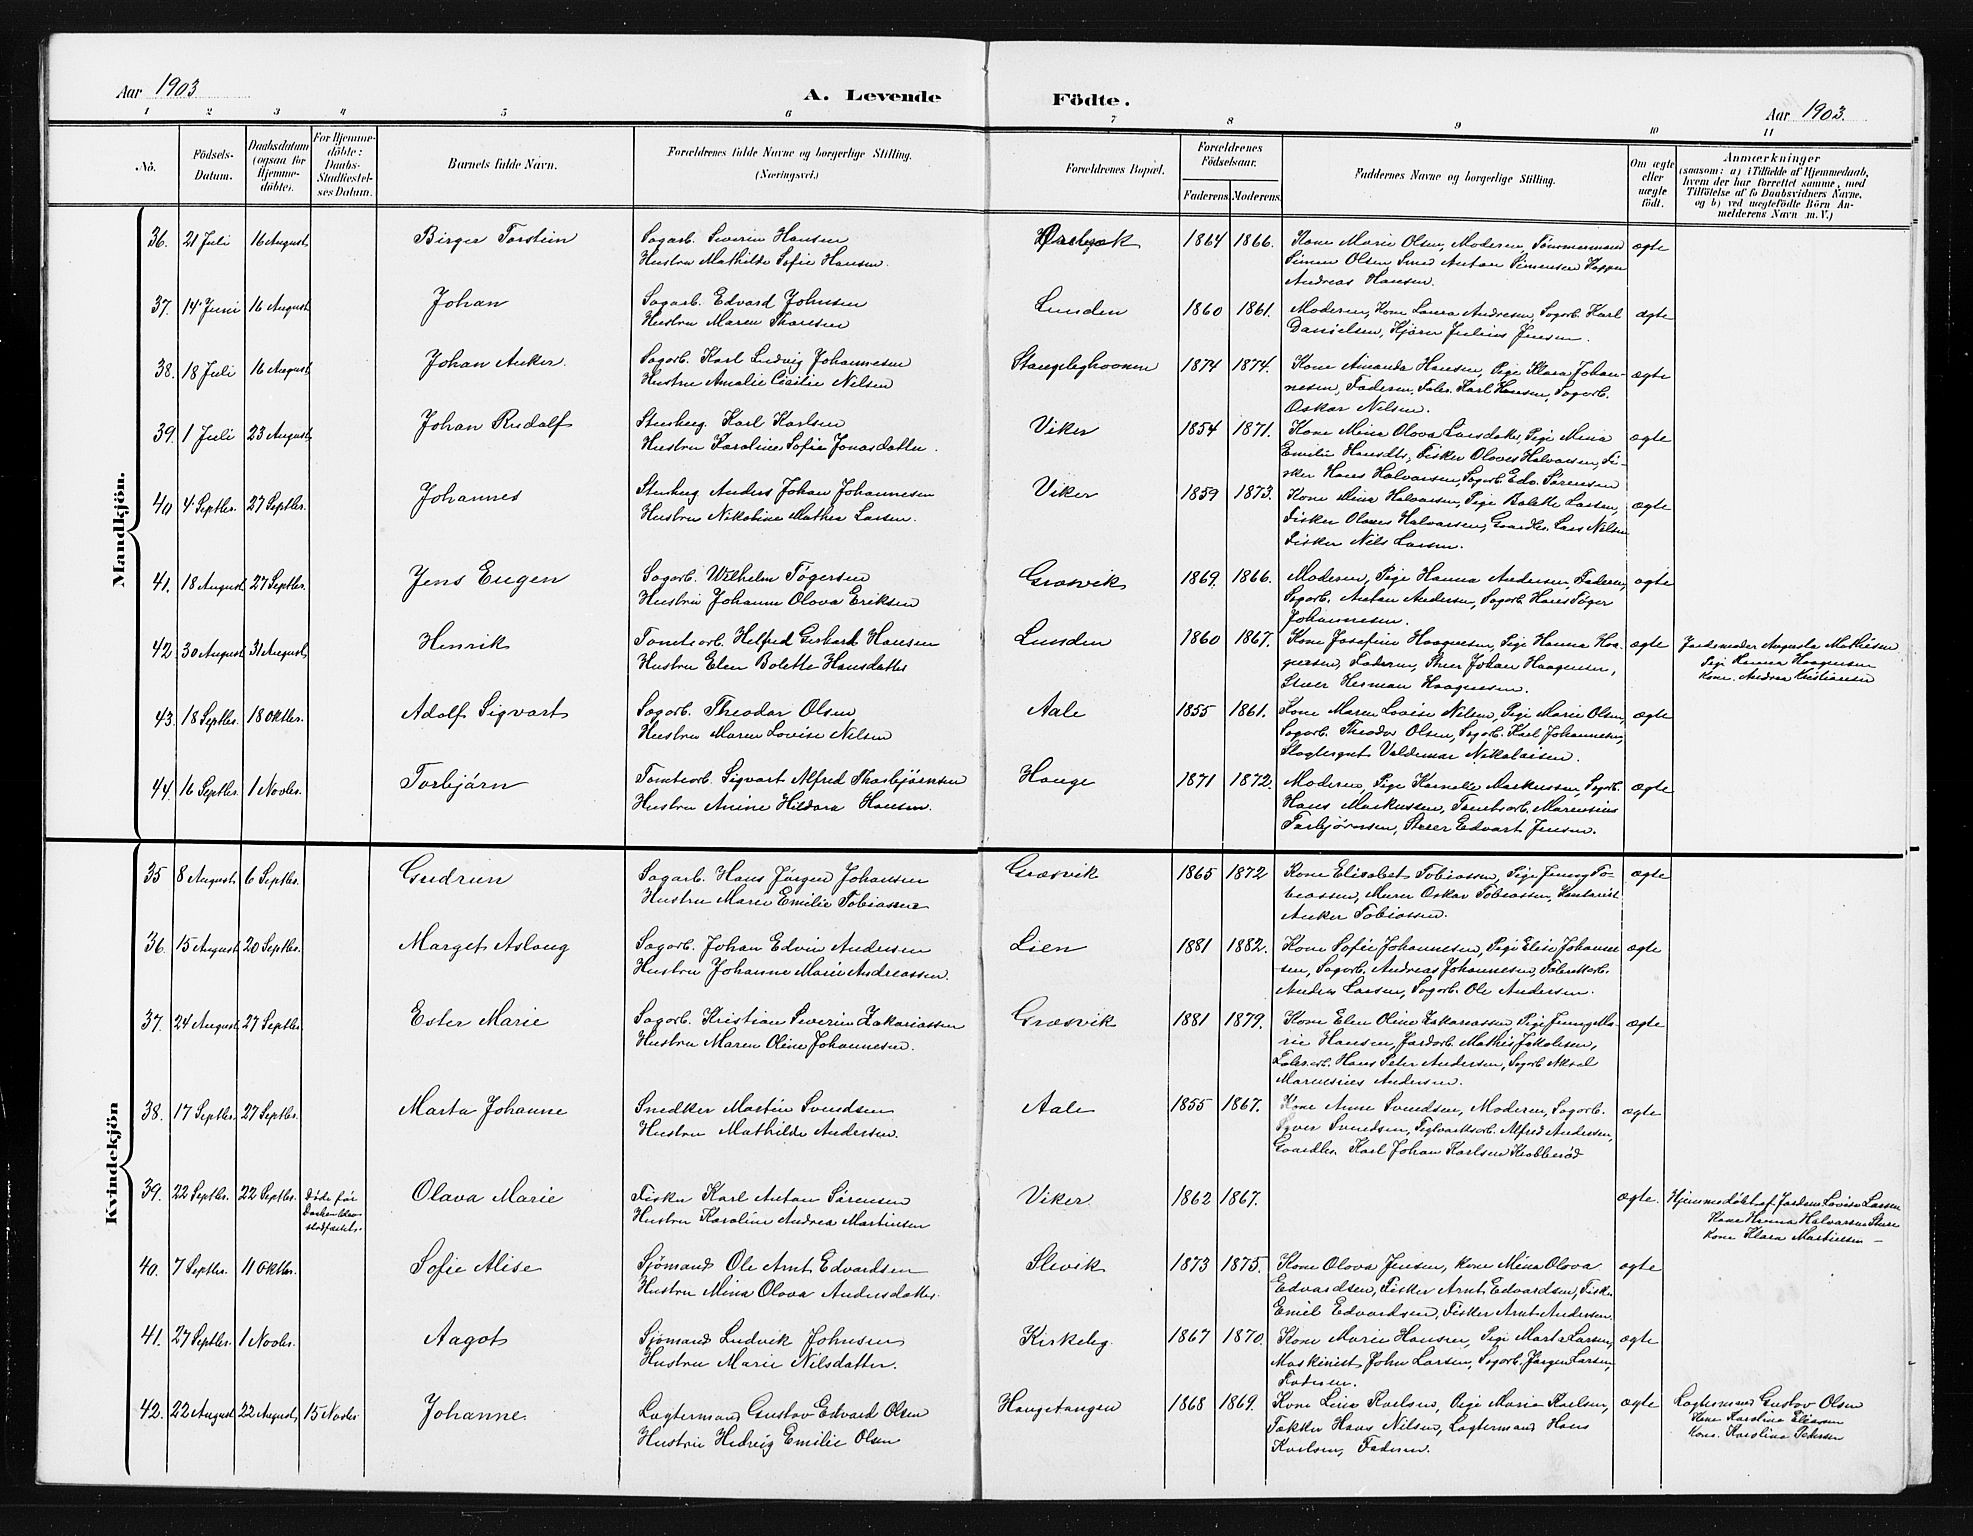 Aar 1903
A. Levende Födte.
Aar 1903.
1 2 3 4 5 6 7 8 9 10 11
No.
Födsels-Datum.
Daabsdatum (ogsaa for Hjemme-döbte).
For Hjemme-döbte: Daabs-Stadfæstel-ses Datum.
Barnets fulde Navn.
Forældrenes fulde Navne og borgerlige Stilling.
(Næringsvei.)
Forældrenes Bopæl.
Forældrenes Födselsaar.
Faderens. Moderens.
Faddernes Navne og borgerlige Stilling.
Om ægte eller uægte födt.
Anmærkninger
(saasom: a) i Tilfælde af Hjemmedaab,
hvem der har forrettet samme, med
Tilföielse af to Daabsvidners Navne,
og b) ved uægtefödte Börn An-
melderens Navn m. V.)
Mandkjön.
36. 21 Juli 16 August Birger Torstein Sagarb. Severin Hansen 1864 1866. Kone Marie Olsen, Moderen, Tömmermand ægte
Hustru Mathilde Sofie Hansen. Simen Olsen Smed Anton Simensen
Andreas Hansen.
37. 14 Juni 16 August Johan Sagarb. Edvard Johnsen Lunden 1860 1861. Moderen, Kone Laura Andresen, Sagarb. Karl ægte
Hustru Maren Thoresen Danielsen, Kjörer Julius Jensen.
38. 18 Juli 16 August Johan Anker. Sagarb. Karl Ludvig Johannesen 1874 1874. Kone Amanda Hansen, Pige Klara Johan- ægte
Hustru Amalie Cecilie Nilsen nesen, Faderen, Karl Hansen, Sagarb.
Oskar Nilsen.
39. 1 Juli 23 August Johan Rudolf Stenhug. Karl Karlsen Viker 1854 1871. Kone Mina Olava Larsdatter, Pige Mina ægte
Hustru Karoline Sofie Jonasdatter. Emilie Hansdtr, Fisker Olaves Halvorsen, Fi-
sker Hans Halvorsen, Sagarb. Edv. Sörensen
40 4 Septbr. 27 Septbr. Johannes Stenhug Anders Johan Johannesen Viker 1859 1873. Kone Mina Halvorsen, Pige Bolette Larsen, ægte
Hustru Nikoline Mathea Larsen. Fisker Olaves Halvorsen, Gaardbr. Lars Nilsen
Fisker Nils Larsen.
41. 18 August 27 Septbr. Jens Eugen Sagarb. Wilhelm Tögersen Græsvik 1869. 1866. Moderen, Pige Hanna Andersen, Faderen, ægte
Hustru Johanne Olava Eriksen Sagarb. Anton Andersen, Sagarb. Hans Töger
Johannesen.
42 30 August 31 August Henrik Tomtearb. Helfred Gerhard Hansen Lunden 1860 1867. Kone Josefine Haagensen, Pige Hanna Haa- ægte Jordemoder Augusta Mathisen
Hustru Elen Bolette Hansdatter gensen, Faderen, Struer Johan Haagensen, Pige Hanna Haagensen
Stuer Herman Haagensen. Kone. Andrea Kristiansen
43. 18 Septbr. 18 Oktbr. Adolf Sigvart Sagarb. Theodor Olsen Aale 1855 1861. Kone Maren Lovise Nilsen, Pige Marie Olsen, ægte
Hustru Maren Lovise Nilsen Sagarb. Theodor Olsen, Sagarb. Karl Johannesen,
Slagtergut Valdemar Nikolaisen.
44. 16 Septbr. 1 Novbr. Torbjörn Tomtearb. Sigvart Alfred Thorbjörnsen Hauge 1871 1872. Moderen, Pige Kornelie Markussen, Sagarb. ægte
Hustru Anine Hildora Hansen. Hans Markussen, Tomtearb. Marensius
Torbjörnsen, Struer Edvart Jensen.
Kvindekjön
35 8 August 6 Septbr. Gudrun Sagarb. Hans Jörgen Johansen Græsvik 1865 1872 Kone Elisabet Tobiassen, Pige Jenny To- ægte
Hustru Maren Emilie Tobiassen biassen, Murer Oskar Tobiassen, Kontorist
Anker Tobiassen.
36. 15 August 20 Septbr. Marget Aslaug Sagarb. Johan Edvin Andersen Lien 1881 1882. Kone Sofie Johannesen, Pige Elise Johanne- ægte
Hustru Johanne Marie Andreassen. sen, Sagarb. Andreas Johannesen, Fabrikarb.
Anders Larsen, Sagarb. Ole Andersen.
37. 24 August 27 Septbr. Ester Marie Sagarb. Kristian Severin Zakariassen Græsvik 1881 1879. Kone Elen Oline Zakariassen, Pige Jenny Ma- ægte
Hustru Maren Oline Johannesen. rie Hansen, Jordarb. Mathis Jakobsen,
Hans Peter Andersen, Sagarb. Aksel
Marensius Andersen.
38. 17 Septbr. 27 Septbr. Marta Johanne Snedker Martin Svendsen Aale 1855 1867. Kone Anne Svendsen, Moderen, Sagarb. ægte
Hustru Mathilde Andersen. Syver Svendsen, Teglværksarb. Alfred Andersen,
Gaardbr. Karl Johan Karlsen
39. 22 Septbr. 22 Septbr. Döde för Daaben blev stadfæstet. Olava Marie Fisker Karl Anton Sörensen Viker 1862 1867. ægte. Hjemmedöbt af Jordem. Lovise Larsen
Hustru Karoline Andrea Martinsen Kone Hanna Halvorsen
Kone Klara Martinsen
40. 7 Septbr. 11 Oktbr. Sofie Alise Sjömand Ole Arnt Edvardsen Slevik 1873 1875. Kone Olava Jensen, Kone Mina Olava ægte
Hustru Mina Olava Andersdatter. Edvardsen, Fisker Arnt Edvardsen, Fisk.
Emil Edvardsen, Fisker Arnt Andersen.
41. 27 Septbr. 1 Novbr. Aagot Sjömand Ludvik Johnsen Kirkebg. 1867 1870. Kone Marie Hansen, Pige Marta Larsen, ægte
Hustru Marie Nilsdatter. Maskinist John Larsen, Sagarb. Jörgen Larsen,
Faderen.
42. 22 August 22 August 15 Novbr Johanne Lagtermand Gustav Edvard Olsen Haugetangen 1868 1869. Kone Lina Karlsen, Pige Maria Karlsen, ægte Lagtermand Gustav Olsen
Hustru Hedvig Emilie Olsen Takker Hans Nilsen, Lagtermand Hans Kone Karoline Eliassen
Karlsen, Faderen. Kone. Karoline Pedersen